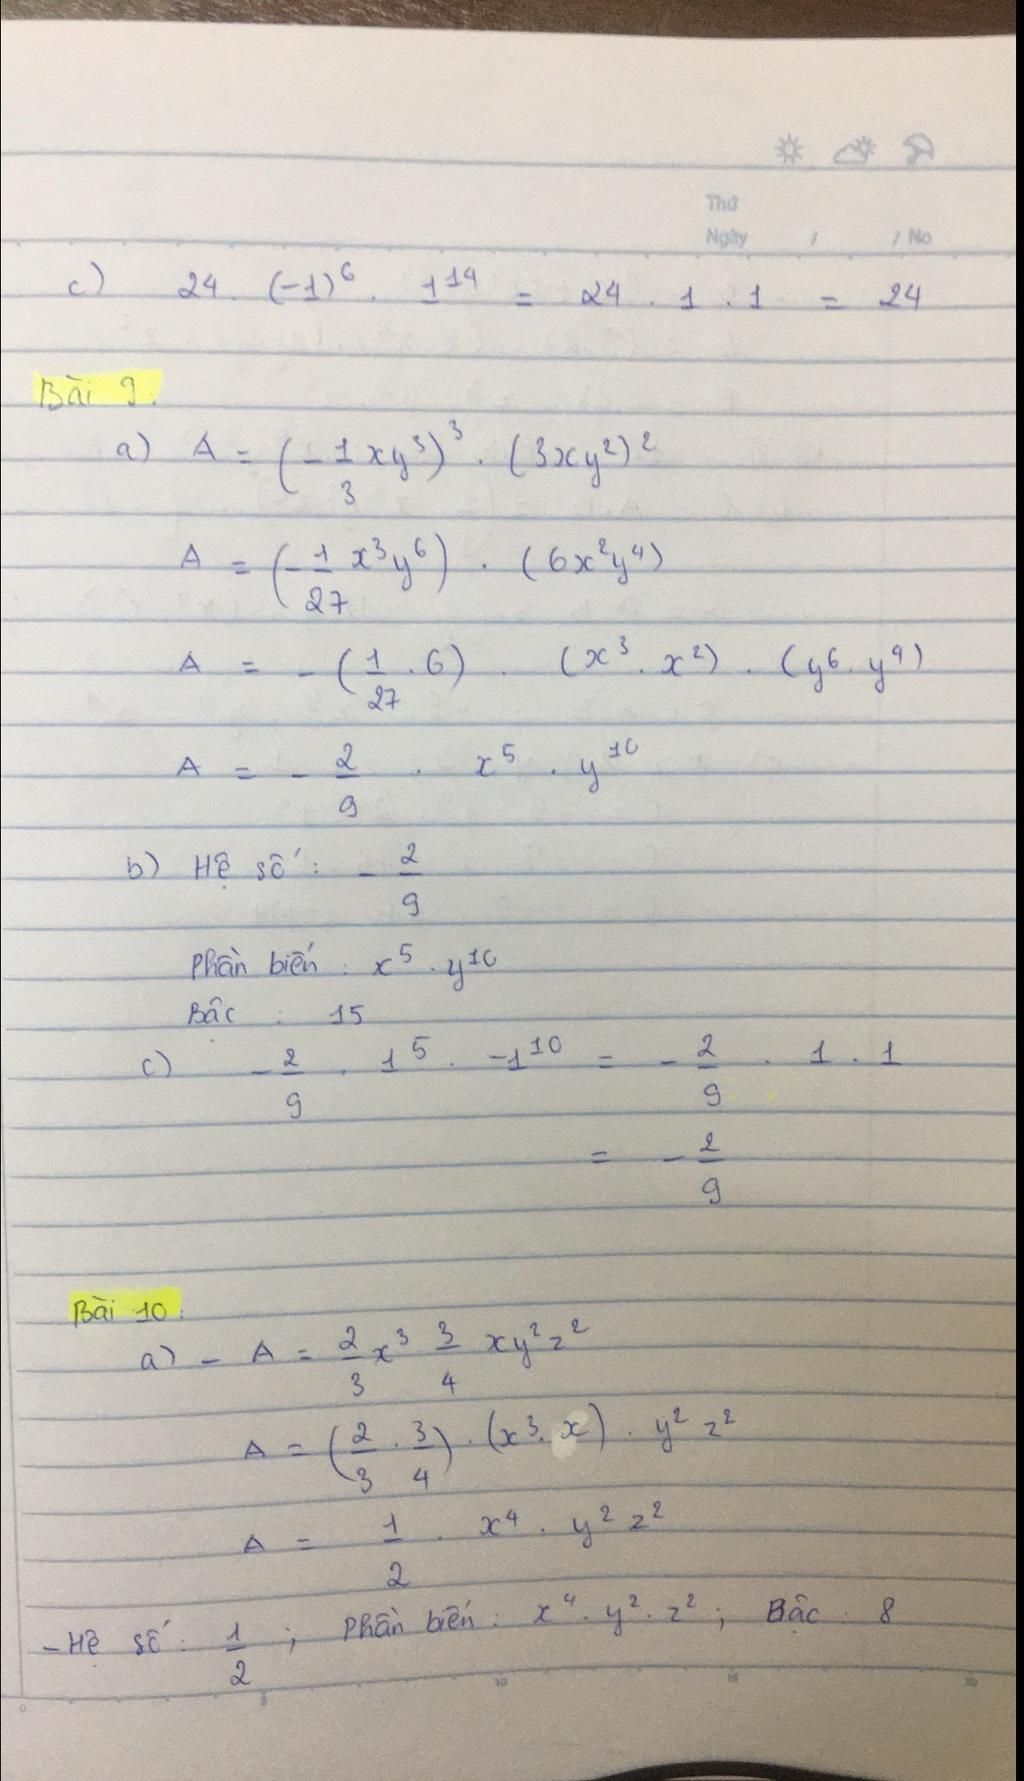 Thứ
Ngày / / No
c) 24 . (-1)^6 . 1^14 = 24 . 1 . 1 = 24
Bài 9.
a) A = (-1/3 xy^3)^3 . (3xy^2)^2
A = (-1/27 x^3y^6) . (6x^2y^4)
A = -(1/27 . 6) . (x^3 . x^2) . (y^6 . y^4)
A = - 2/9 . x^5 . y^10
b) Hệ số : - 2/9
Phần biến : x^5 . y^10
Bâc : 15
c) - 2/9 . 1^5 . -1^10 = - 2/9 . 1 . 1
= - 2/9
Bài 10:
a) - A = 2/3 x^3 3/4 xy^2z^2
A = (2/3 . 3/4) . (x^3 . x) . y^2 z^2
A = 1/2 . x^4 . y^2 z^2
- Hệ số : 1/2 ; Phần biến : x^4 . y^2 . z^2 ; Bậc : 8
0 5 10 15 20